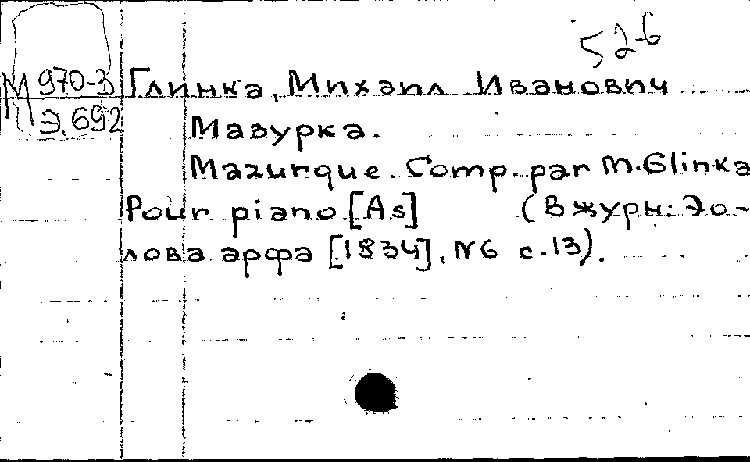 526
М 970-3
Э.692
Глинка, Михаил Иванович
Мазурка.
Mazurque. Comp. par M. Glinka
Pour piano [As] (В журн: Эо-
лова арфа [1834], №6 с.13).